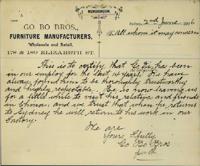 MEMORANDUM
GO BO BROS.,
FURNITURE MANUFACTURERS,
Wholesale and Retail,
ELIZABETH ST.
Sydney, 2nd June, 191
To all whom it may concern
This is to certify that has been
in our employ for the last years. We have
always found him to be thoroughly trustworthy
and highly respectable. He is now leaving us
for a little while to visit his relatives and friends
in China, and we trust that when he returns
to Sydney he will return to his work in our
factory.
We are
Yours faithfully
Go Bo Bros